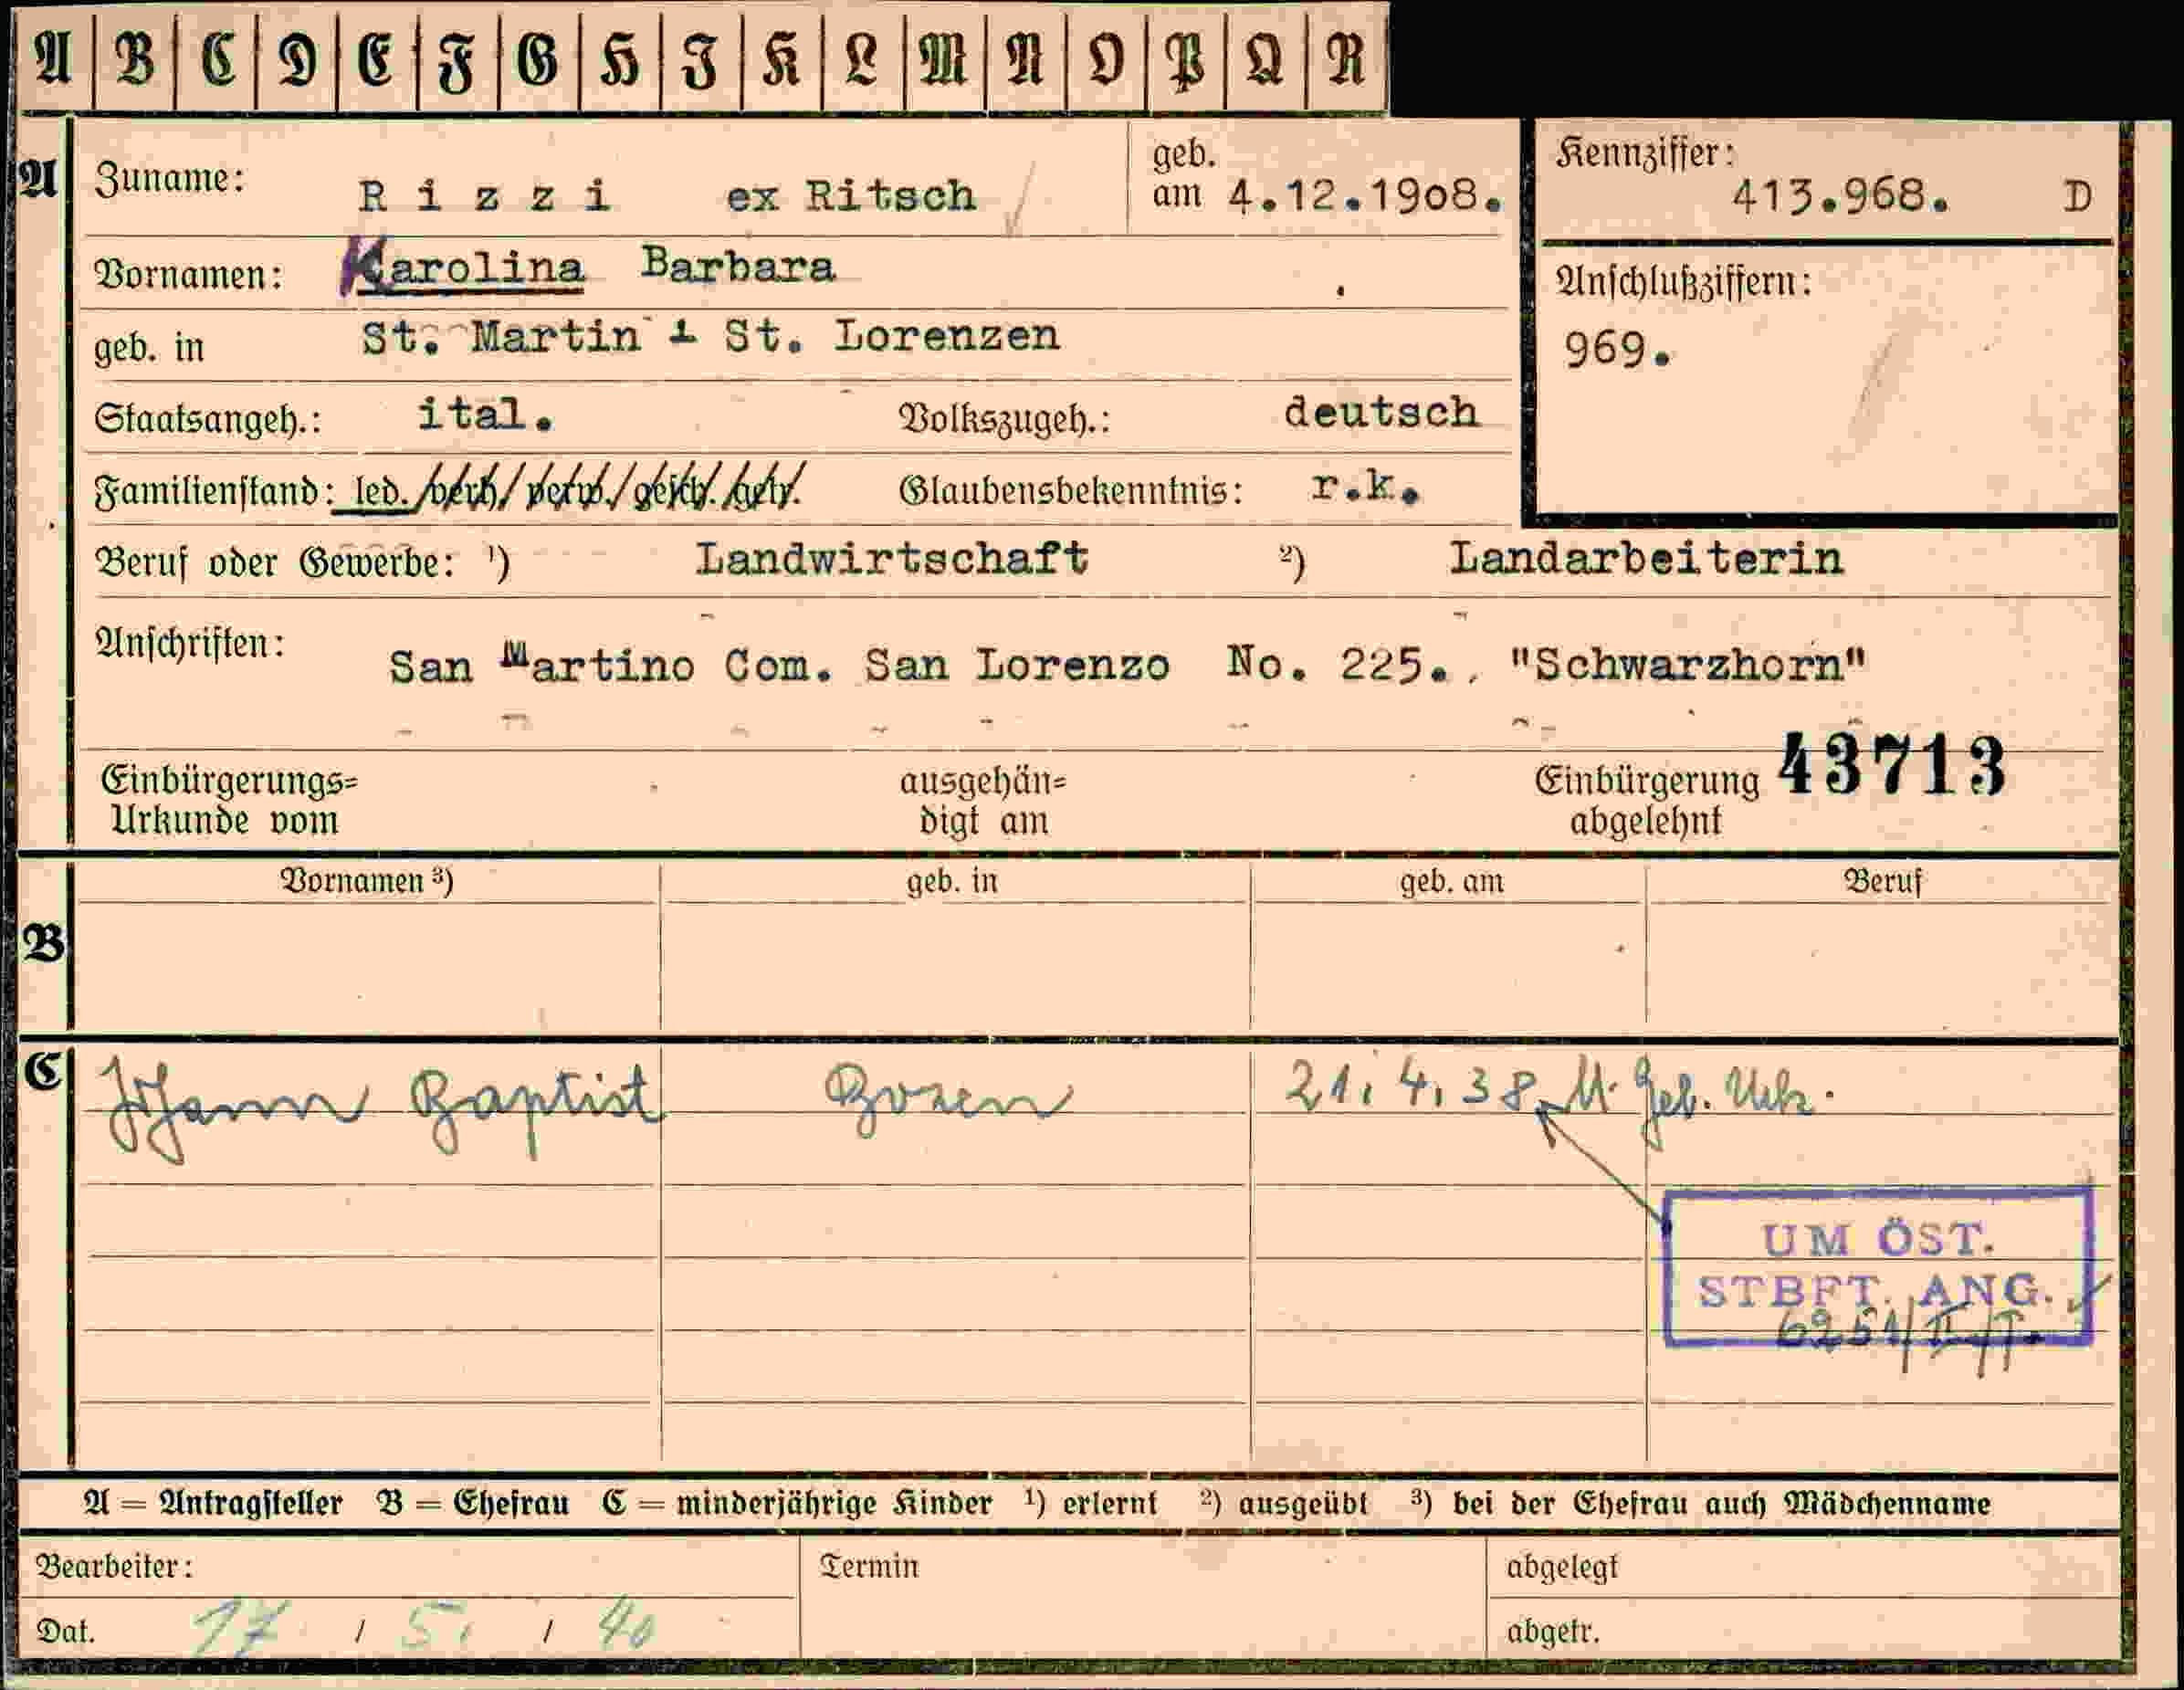 A B C D E F G H I K L M N O P Q R
A Zuname: Rizzi ex Ritsch geb. am 4.12.1908. Kennziffer: 413.968. D
Vornamen: Karolina Barbara
Anschlußziffern: 969.
geb. in St. Martin i St. Lorenzen
Staatsangeh.: ital. Volkszugeh.: deutsch
Familienstand: led./verh/verw./gesch./getr. Glaubensbekenntnis: r.k.
Beruf oder Gewerbe: ¹) Landwirtschaft ²) Landarbeiterin
Anschriften: San Martino Com. San Lorenzo No. 225., "Schwarzhorn"
Einbürgerungs= Urkunde vom ausgehän= digt am Einbürgerung abgelehnt 43713
B Vornamen ³) geb. in geb. am Beruf
C Johann Baptist Bozen 21.4.38. Geb. Urk.
UM ÖST.
STBFT. ANG.
6251/II/
A = Antragsteller B = Ehefrau C = minderjährige Kinder ¹) erlernt ²) ausgeübt ³) bei der Ehefrau auch Mädchenname
Bearbeiter: Termin abgelegt
Dat. 17 / 5. / 40 abgetr.